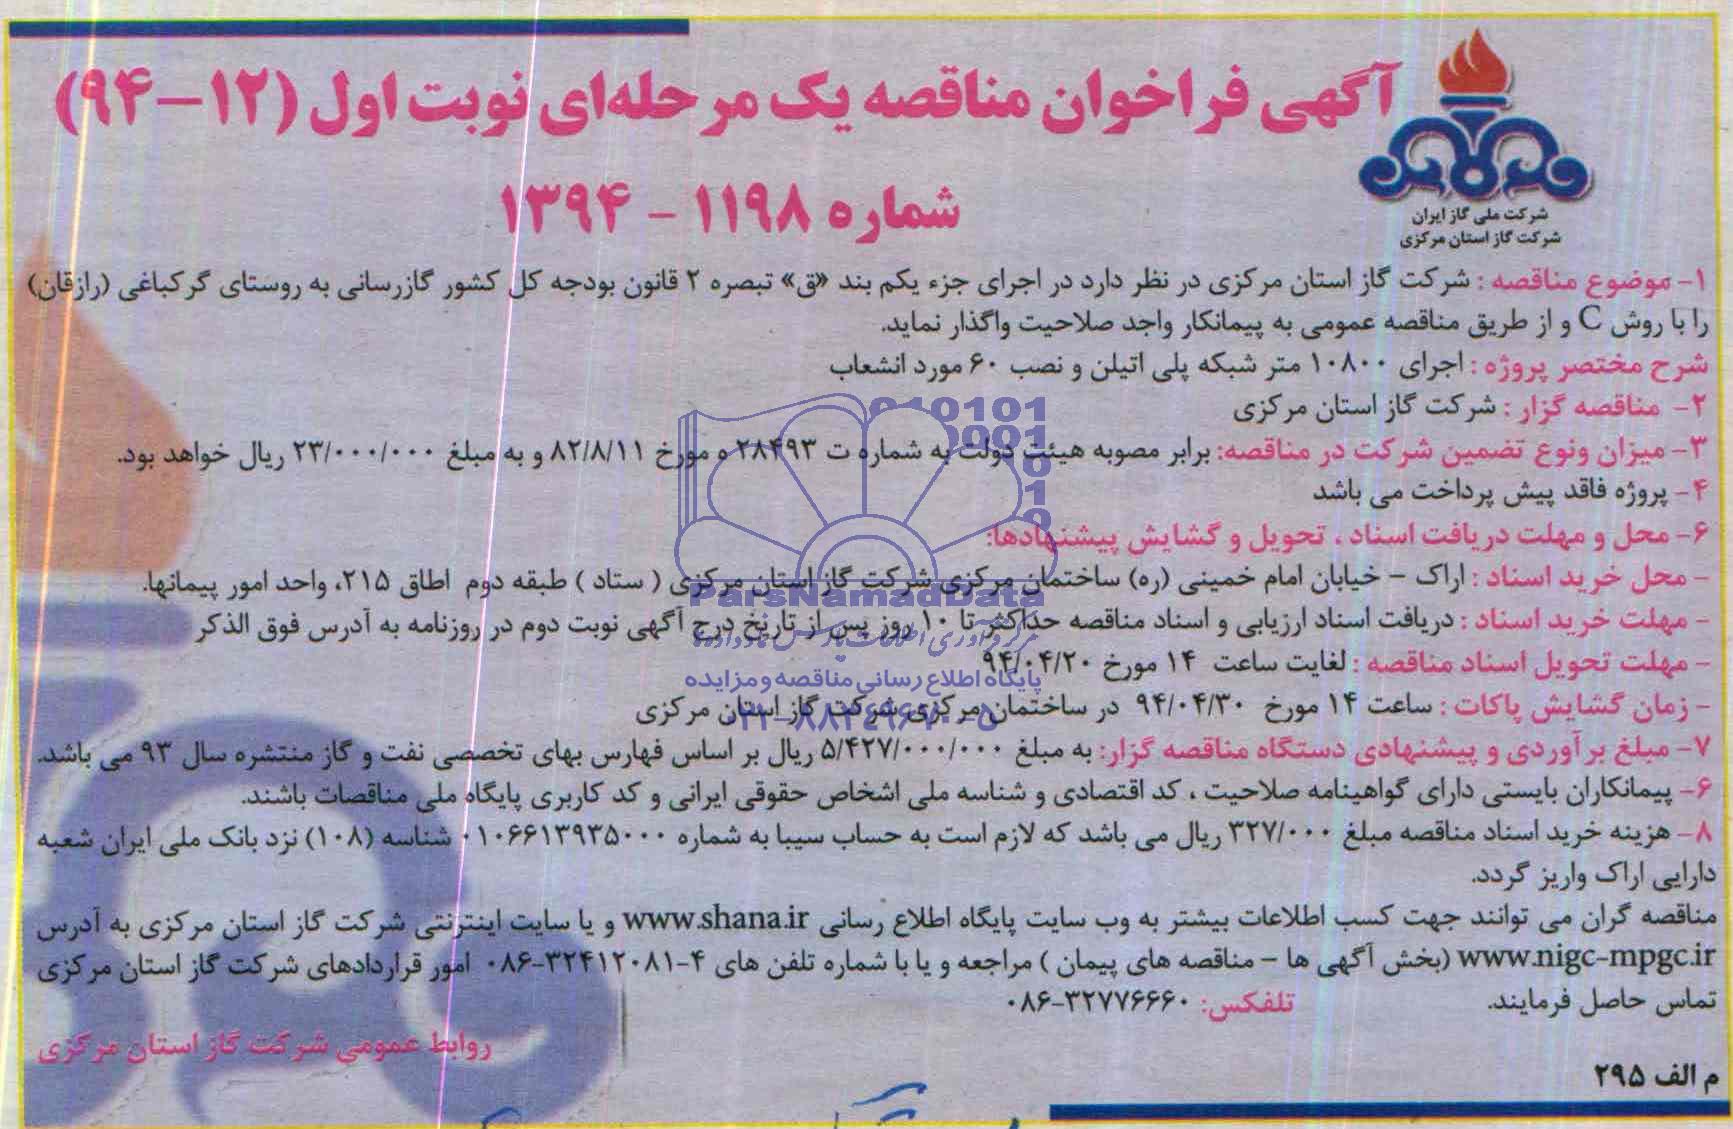 آگهی فراخوان مناقصه یک مرحله‌ای نوبت اول (۱۲–۹۴)
شماره ۱۱۹۸ – ۱۳۹۴
شرکت ملی گاز ایران
شرکت گاز استان مرکزی
۱- موضوع مناقصه : شرکت گاز استان مرکزی در نظر دارد در اجرای جزء یکم بند «ق» تبصره ۲ قانون بودجه کل کشور گازرسانی به روستای گرکباغی (رازقان)
را با روش C و از طریق مناقصه عمومی به پیمانکار واجد صلاحیت واگذار نماید.
شرح مختصر پروژه : اجرای ۱۰۸۰۰ متر شبکه پلی اتیلن و نصب ۶۰ مورد انشعاب
۲- مناقصه گزار : شرکت گاز استان مرکزی
۳- میزان ونوع تضمین شرکت در مناقصه: برابر مصوبه هیئت دولت به شماره ت ۲۸۴۹۳ ه مورخ ۸۲/۸/۱۱ و به مبلغ ۲۳/۰۰۰/۰۰۰ ریال خواهد بود.
۴- پروژه فاقد پیش پرداخت می باشد
۶- محل و مهلت دریافت اسناد ، تحویل و گشایش پیشنهادها:
- محل خرید اسناد : اراک – خیابان امام خمینی (ره) ساختمان مرکزی شرکت گاز استان مرکزی ( ستاد ) طبقه دوم اطاق ۲۱۵، واحد امور پیمانها.
- مهلت خرید اسناد : دریافت اسناد ارزیابی و اسناد مناقصه حداکثر تا ۱۰ روز پس از تاریخ درج آگهی نوبت دوم در روزنامه به آدرس فوق الذکر
- مهلت تحویل اسناد مناقصه : لغایت ساعت ۱۴ مورخ ۹۴/۰۴/۲۰
- زمان گشایش پاکات : ساعت ۱۴ مورخ ۹۴/۰۴/۳۰ در ساختمان مرکزی شرکت گاز استان مرکزی
۷- مبلغ برآوردی و پیشنهادی دستگاه مناقصه گزار: به مبلغ ۵/۴۲۷/۰۰۰/۰۰۰ ریال بر اساس فهارس بهای تخصصی نفت و گاز منتشره سال ۹۳ می باشد.
۶- پیمانکاران بایستی دارای گواهینامه صلاحیت ، کد اقتصادی و شناسه ملی اشخاص حقوقی ایرانی و کد کاربری پایگاه ملی مناقصات باشند.
۸- هزینه خرید اسناد مناقصه مبلغ ۳۲۷/۰۰۰ ریال می باشد که لازم است به حساب سیبا به شماره ۰۱۰۶۶۱۳۹۳۵۰۰۰ شناسه (۱۰۸) نزد بانک ملی ایران شعبه
دارایی اراک واریز گردد.
مناقصه گران می توانند جهت کسب اطلاعات بیشتر به وب سایت پایگاه اطلاع رسانی www.shana.ir و یا سایت اینترنتی شرکت گاز استان مرکزی به آدرس
www.nigc-mpgc.ir (بخش آگهی ها – مناقصه های پیمان ) مراجعه و یا با شماره تلفن های ۴-۳۲۴۱۲۰۸۱-۰۸۶ امور قراردادهای شرکت گاز استان مرکزی
تماس حاصل فرمایند. تلفکس: ۳۲۷۷۶۶۶۰-۰۸۶
روابط عمومی شرکت گاز استان مرکزی
م الف ۲۹۵
ParsNamadData
پایگاه اطلاع رسانی مناقصه و مزایده